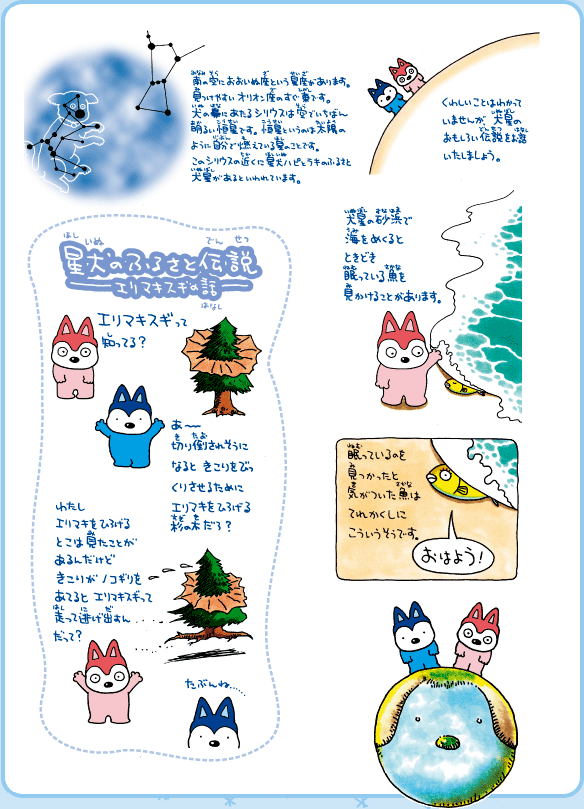 南の空におおいぬ座という星座があります。
見つけやすいオリオン座のすぐ東です。
犬の鼻にあたるシリウスは空でいちばん
明るい恒星です。恒星というのは太陽の
ように自分で燃えている星のことです。
このシリウスの近くに星犬ハピとラキのふるさと
犬星があるといわれています。
くわしいことはわかって
いませんが、犬星の
おもしろい伝説をお話
いたしましょう。
犬星の砂浜で
海をめくると
ときどき
眠っている魚を
見かけることがあります。
眠っているのを
見つかったと
気がついた魚は
てれかくしに
こういうそうです。
おはよう!
ほし いぬ でん せつ
星犬のふるさと伝説
エリマキスギの話
はなし
エリマキスギって
知ってる?
あ〜
切り倒されそうに
なると きこりをびっ
くりさせるために
エリマキをひろげる
杉の木だろ?
わたし
エリマキをひろげる
とこは見たことが
あるんだけど
きこりが ノコギリを
あてると エリマキスギって
走って逃げ出すん
だって?
たぶんね……